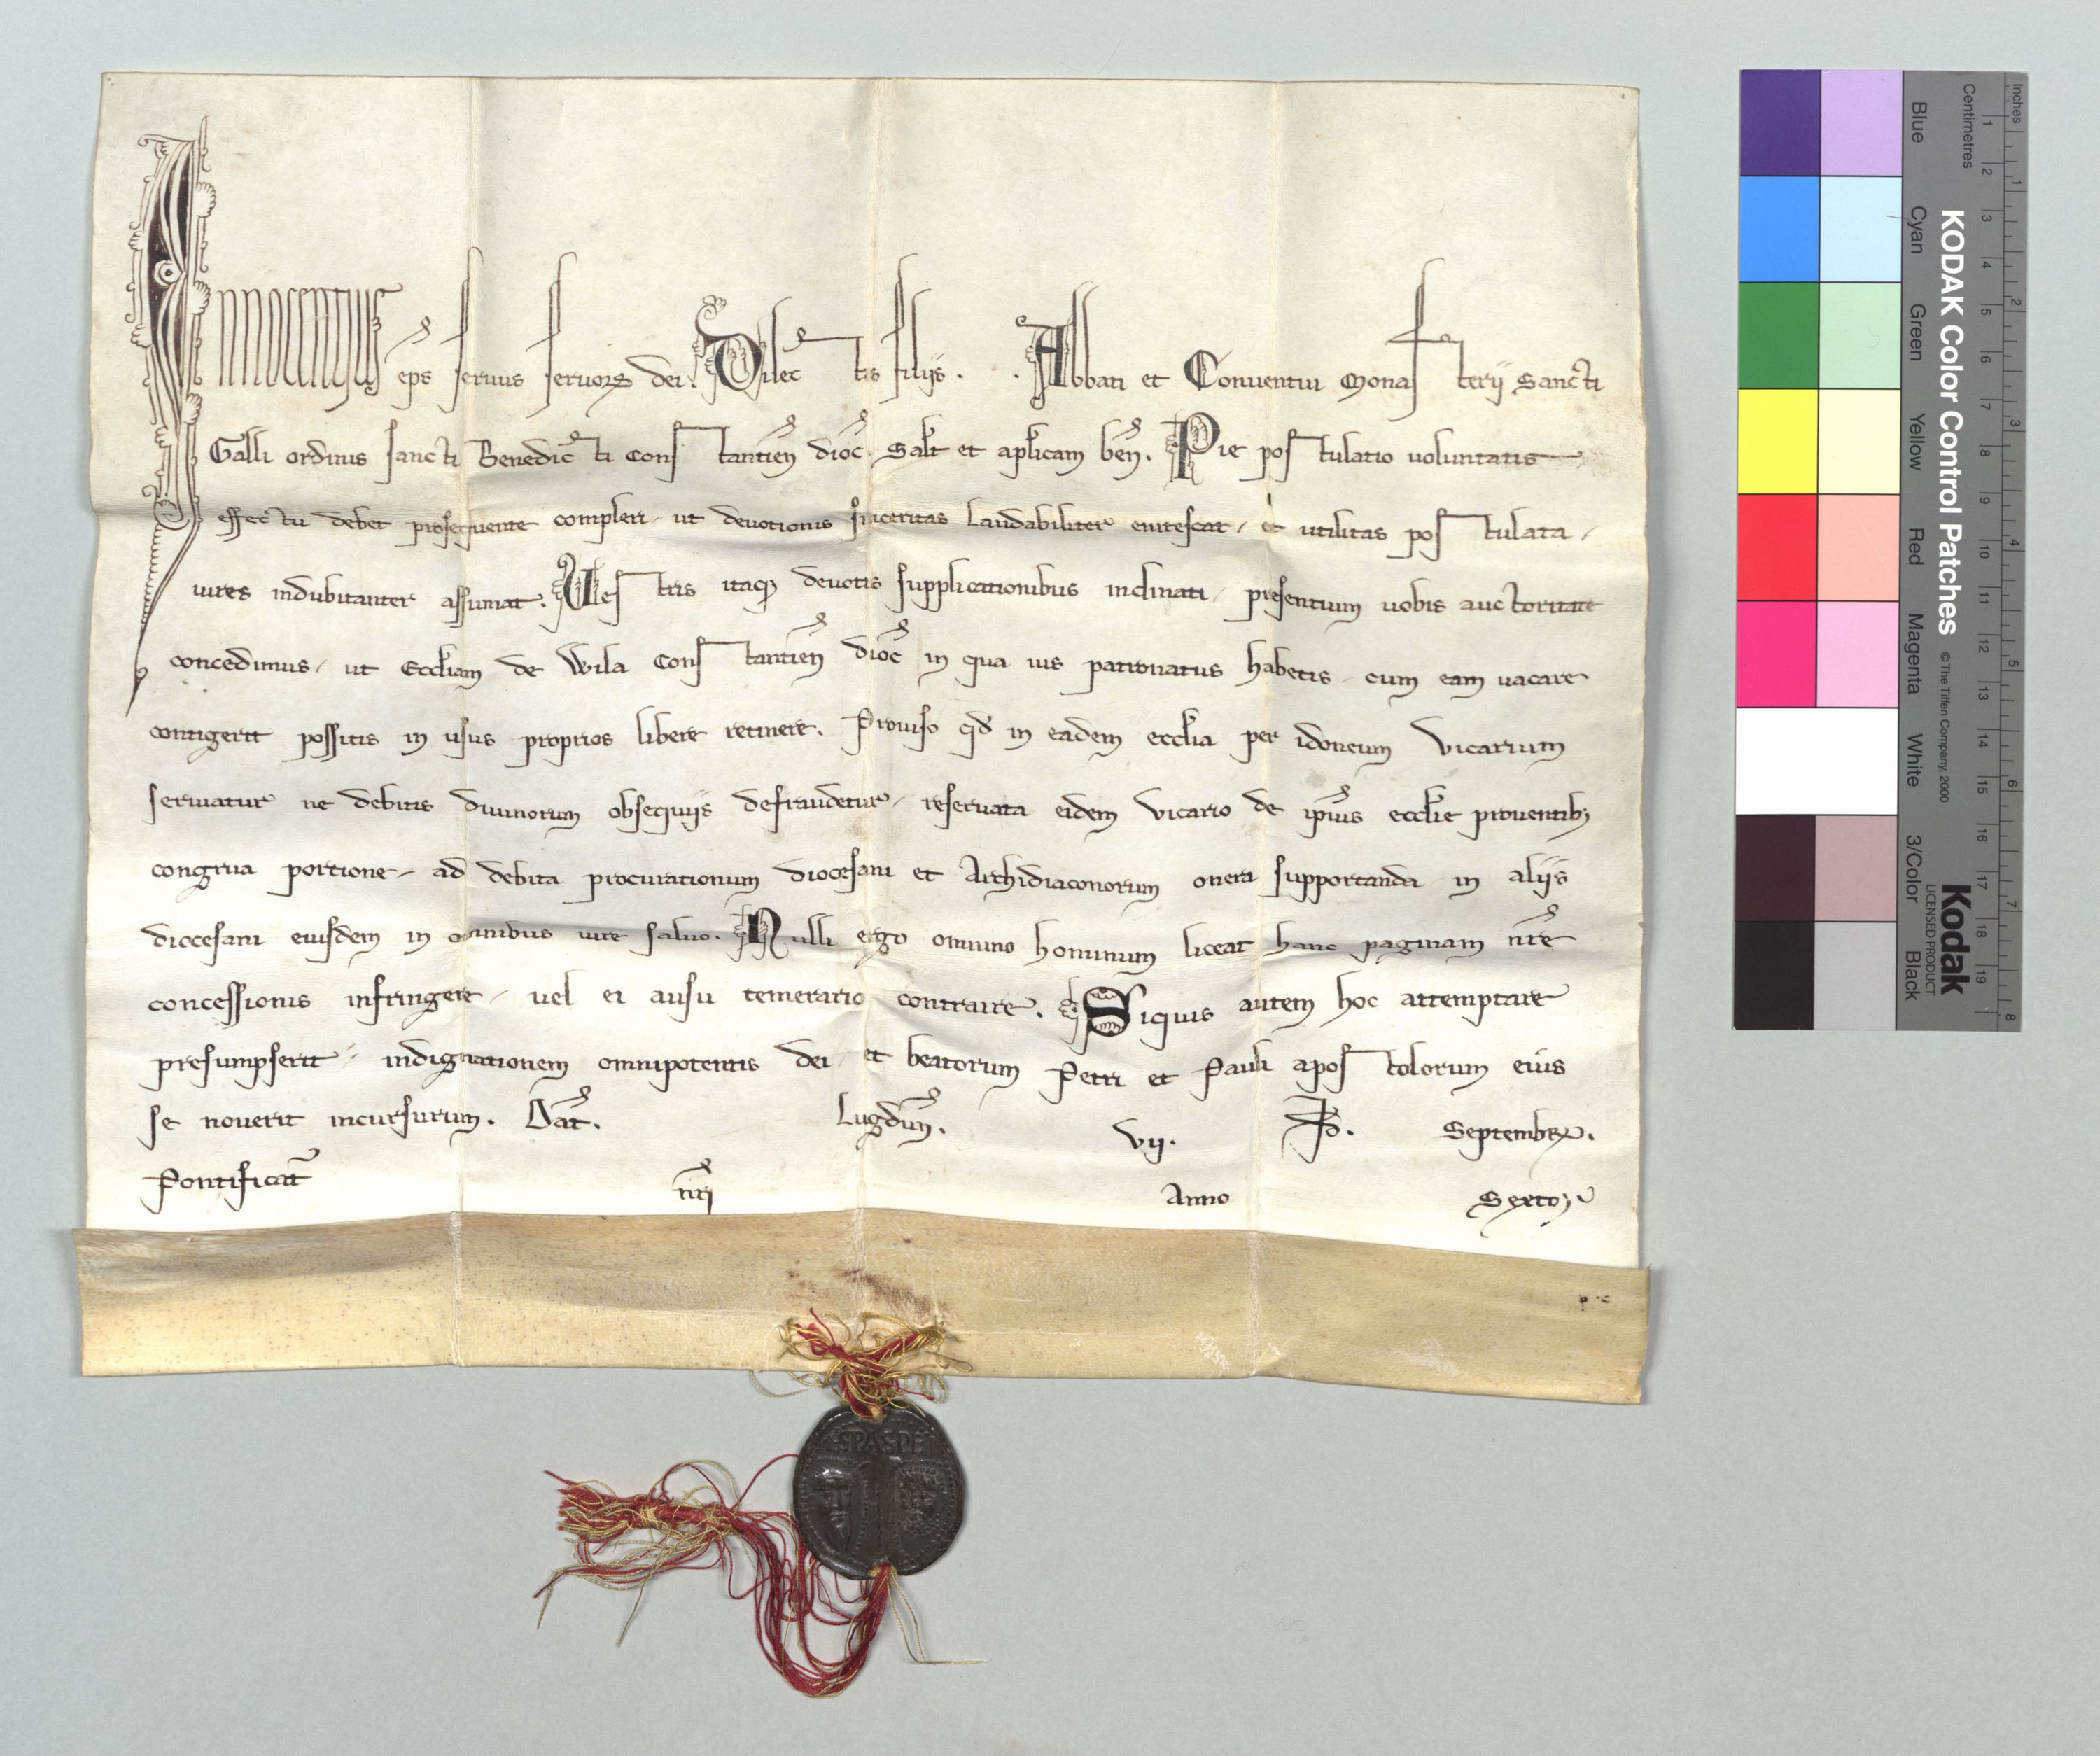 Innocentius eps seruus seruoꝝ dei. Dilectis filijs . . Abbati et Conuentui Monasterij Sancti
Galli ordinis sancti Benedicti Constantien̄ dioc̄ Salt̄ et aplicam ben̄. Pie postulatio uoluntatis
effectu debet prosequente compleri, ut deuotionis sinceritas laudabiliter enitescat, et utilitas postulata,
uires indubitanter assumat. Vestris itaqꝫ deuotis supplicationibus inclinati, presentium uobis auctoritate
concedimus, ut Eccliam de Wila Constantien̄ dioc̄ in qua ius patronatus habetis, cum eam uacare
contigerit possitis in usus proprios libere retinere. Prouiso qd̄ in eadem ecclia per idoneum Vicarium
seruiatur ne debitis diuinorum obsequijs defraudetur, reseruata eidem Vicario de ipius ecclie prouentibꝫ
congrua portione, ad debita procurationum diocesani et Archidiaconorum onera supportanda in alijs
diocesani eiusdem in omnibus iure saluo. Nulli ergo omnino hominum liceat hanc paginam nr̄e
concessionis infringere, uel ei ausu temerario contraire. Siquis autem hoc attemptare
presumpserit, indignationem omnipotentis dei, et beatorum Petri et Pauli apostolorum eius
se nouerit incursurum. Dat̄. Lugdun̄. Vij. Id. Septembꝝ.
Pontificat̄ nr̄i Anno Sexto.
SPASPE
KODAK Color Control Patches
© The Tiffen Company, 2000
Kodak
LICENSED PRODUCT
Inches 1 2 3 4 5 6 7 8
Centimetres 1 2 3 4 5 6 7 8 9 10 11 12 13 14 15 16 17 18 19
Blue Cyan Green Yellow Red Magenta White 3/Color Black